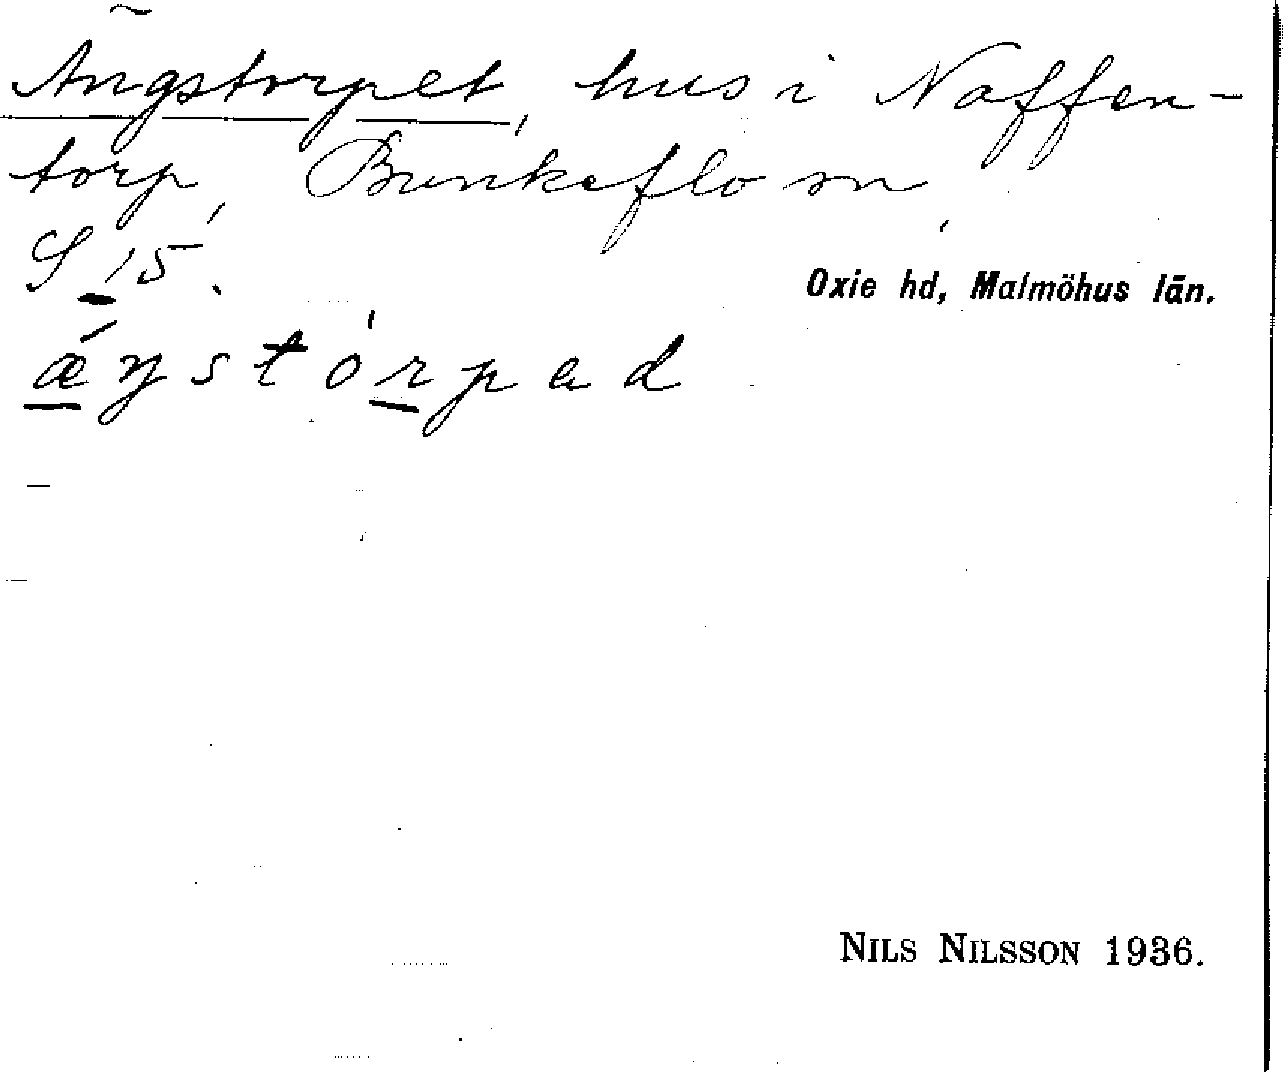 Ängstorpet, hus i Naffen-
torp, Bunkeflo sn,
S 15.
Oxie hd, Malmöhus län.
ǽŋstórpad
NILS NILSSON 1936.